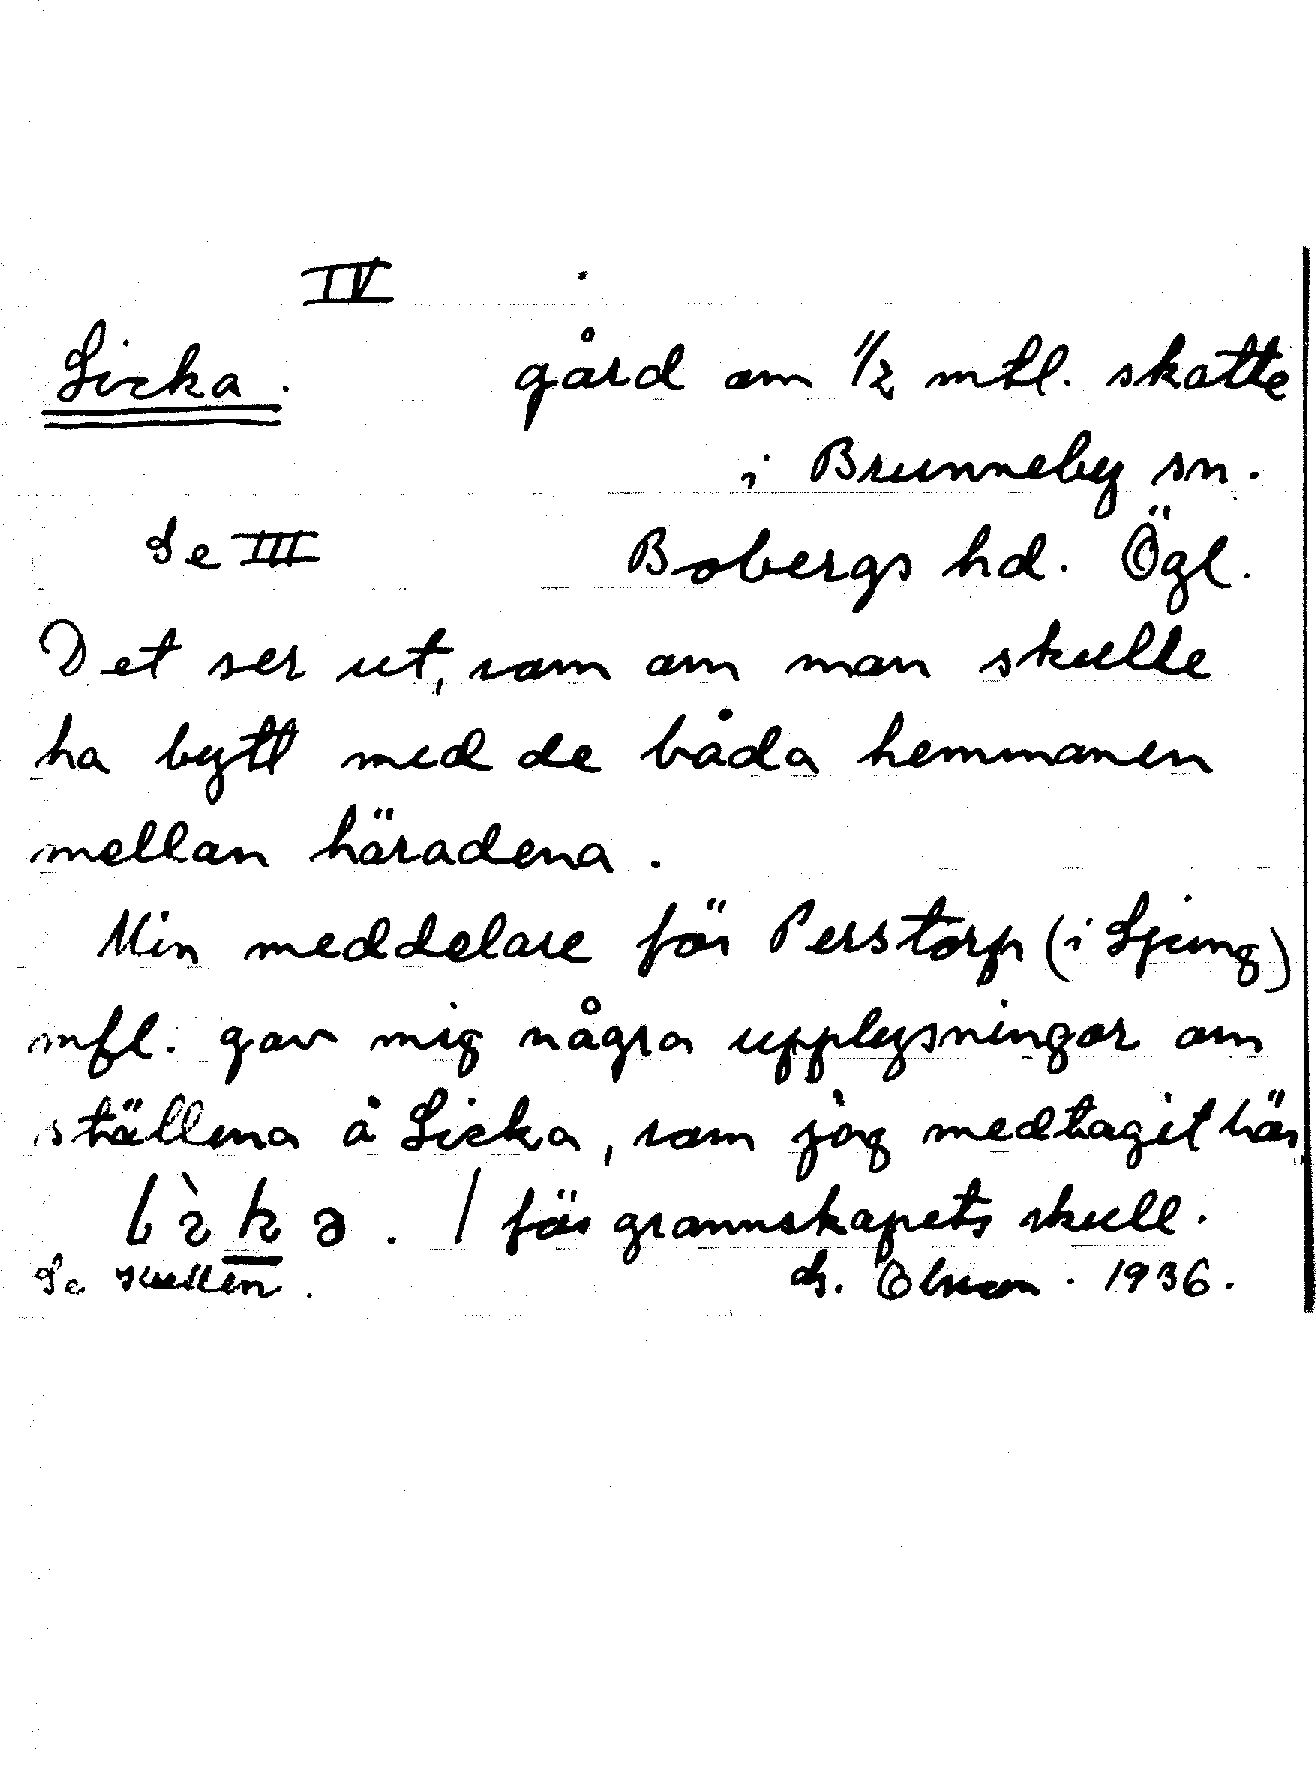 IV
Licka. gård om 1/2 mtl. skatte
i Brunneby sn.
Se III Bobergs hd. Ögl.
Det ser ut, som om man skulle
ha bytt med de båda hemmanen
mellan häradena.
Min meddelare för Perstorp (i Ljung)
mfl. gav mig några upplysningar om
ställena å Licka, som jag medtagit här
/ för grannskapets skull.
Se Kullen. Olson. 1936.